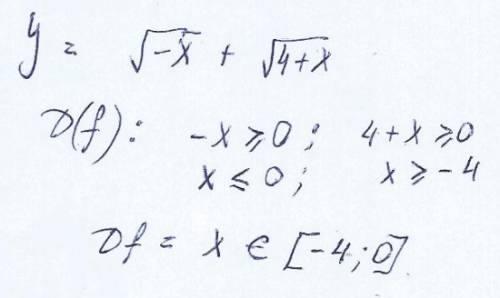 y = √-x + √4+x
D(f): -x ≥ 0; 4+x ≥ 0
x ≤ 0; x ≥ -4
Df = x ∈ [-4; 0]